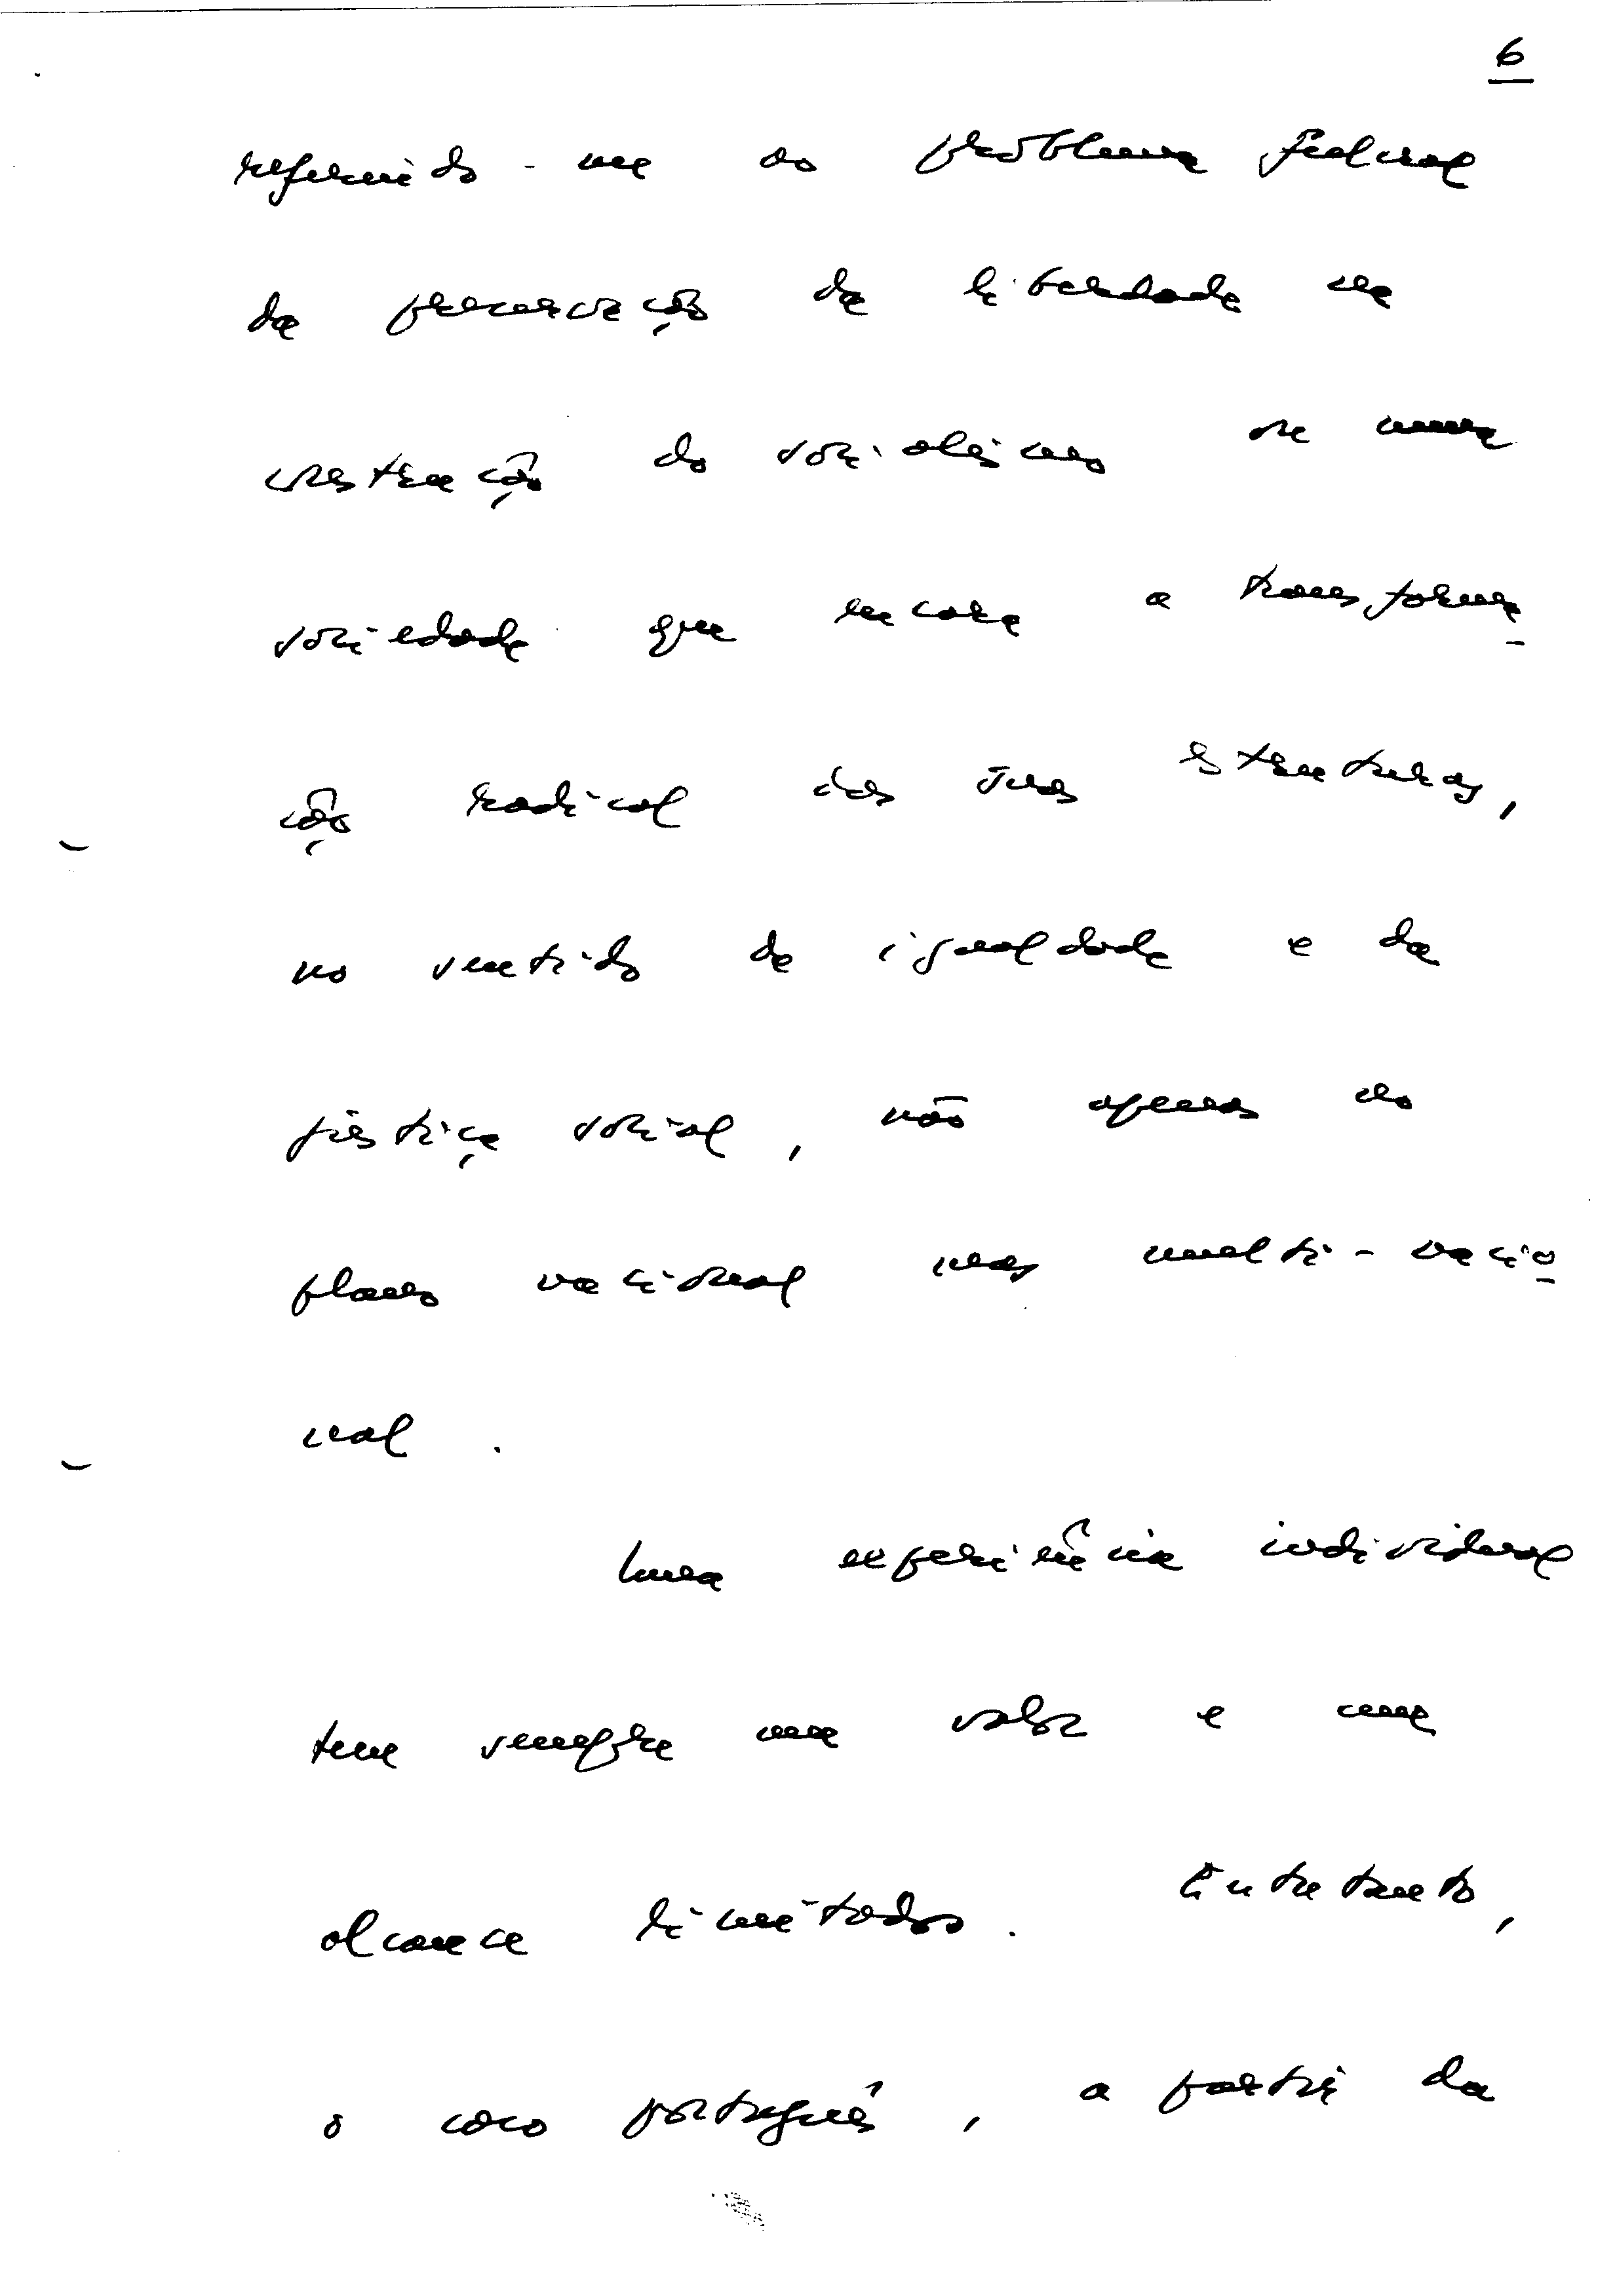 6
referindo-me ao problema fulcral
da preservação da liberdade na
construção do socialismo ou numa
sociedade que encara a transforma-
ção radical das suas estruturas,
no sentido da igualdade e da
justiça social, não apenas no
plano nacional mas multi-nacio-
nal.
Uma experiência individual
tem sempre um valor e um
alcance limitados. Entretanto,
o caso português, a partir da